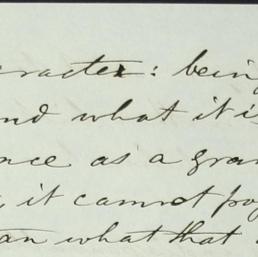 racter: being
nd what it is
nce as a gran
, it cannot pos
an what that